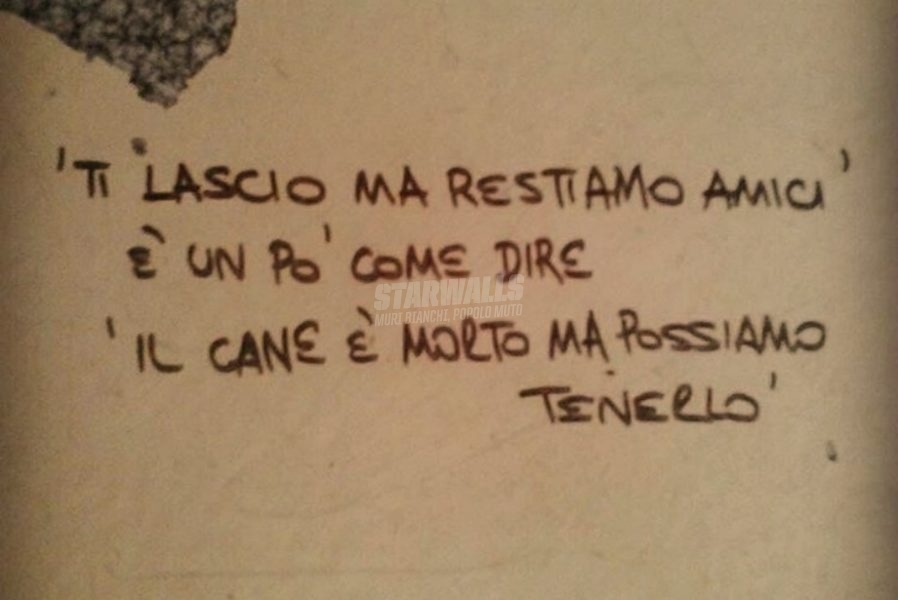 'TI LASCIO MA RESTIAMO AMICI'
È UN PO' COME DIRE
STARWALLS
MURI BIANCHI, POPOLO MUTO
'IL CANE È MORTO MA POSSIAMO
TENERLO'